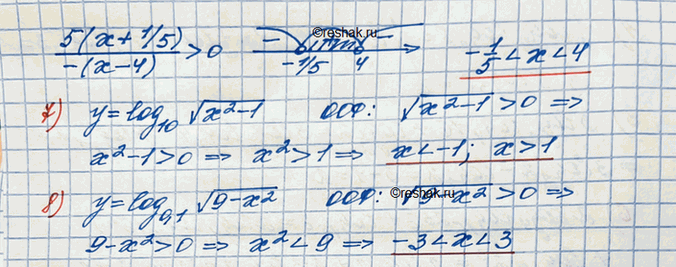 5(x+1/5)/-(x-4) > 0   -   +   -   -1/5   4   -1/5 < x < 4
©reshak.ru
7) y = log₁₀ √x²-1   ООФ: √x²-1 > 0 =>
x²-1 > 0 => x² > 1 => x < -1; x > 1
8) y = log₀,₁ √9-x²   ООФ: √9-x² > 0 =>
©reshak.ru
9-x² > 0 => x² < 9 => -3 < x < 3